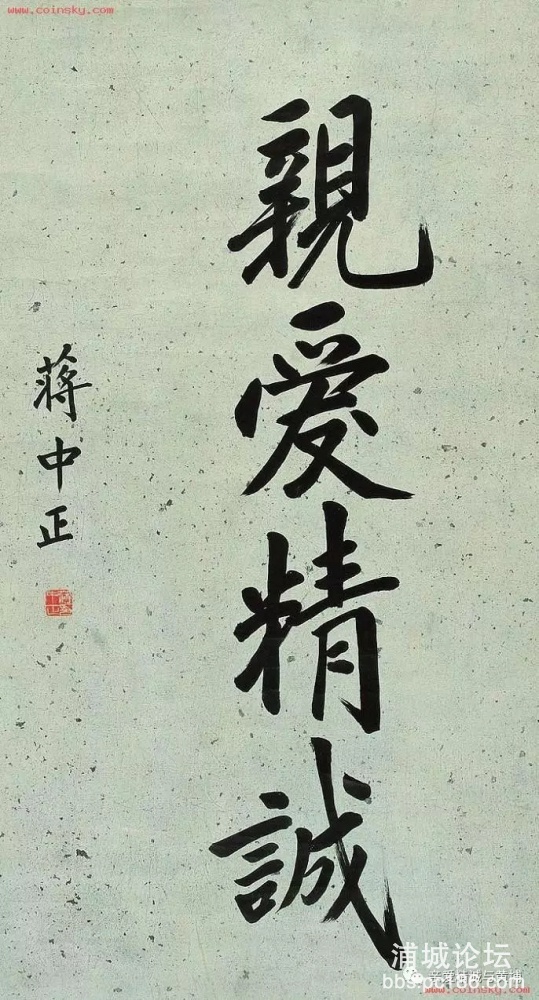 www.coinsky.com
親愛精誠
蔣中正
浦城论坛
bbs.pc186.com
www.coinsky.com